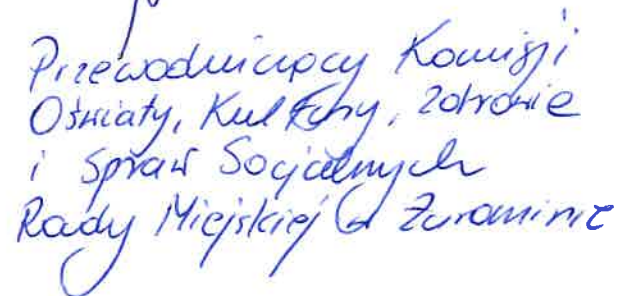 Przewodniczący Komisji
Oświaty, Kultury, Zdrowia
i Spraw Socjalnych
Rady Miejskiej w Żurominie